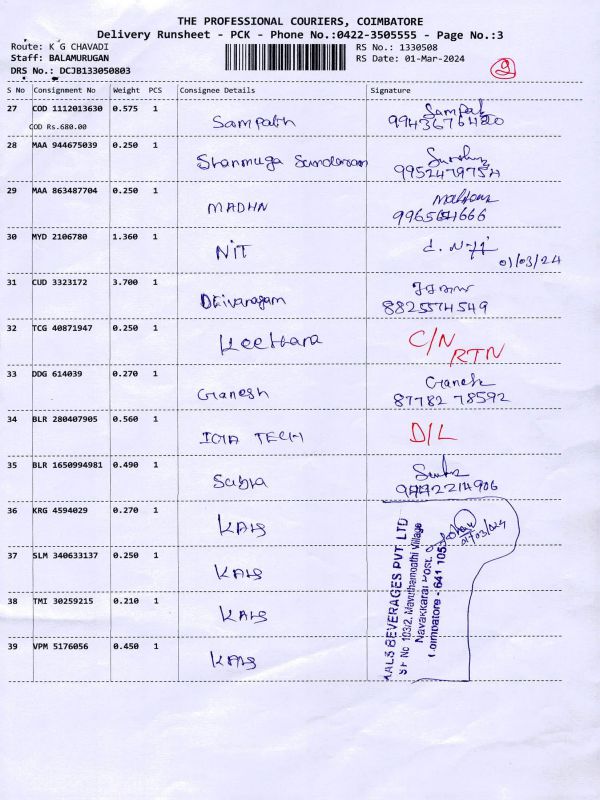 THE PROFESSIONAL COURIERS, COIMBATORE
Delivery Runsheet - PCK - Phone No.:0422-3505555 - Page No.:3
Route: K G CHAVADI
RS No.: 1330508
Staff: BALAMURUGAN
RS Date: 01-Mar-2024
DRS No.: DCJB133050803
2
S No Consignment No Weight PCS Consignee Details Signature
27 COD 1112013630 0.575 1 Sampath
COD Rs.680.00
28 MAA 944675039 0.250 1 Shanmuga Sundaram
29 MAA 863487704 0.250 1 MADHN
30 MYD 2106780 1.360 1 NIT
01/03/24
31 CUD 3323172 3.700 1 Deivaragam
8825574549
32 TCG 40871947 0.250 1 Keethara C/N
RTN
33 DDG 614039 0.270 1 Ganesh Ganesh
87782 78592
34 BLR 280407905 0.560 1 TECH D/L
35 BLR 1650994981 0.490 1 Subra
36 KRG 4594029 0.270 1 KALS
37 SLM 340633137 0.250 1 KALS
38 TMI 30259215 0.210 1 KALS
39 VPM 5176056 0.450 1 KALS
KALS BEVERAGES PVT. LTD
S.F No 103/2, Mavuthampathi Village
Navakkarai Post,
Coimbatore - 641 105